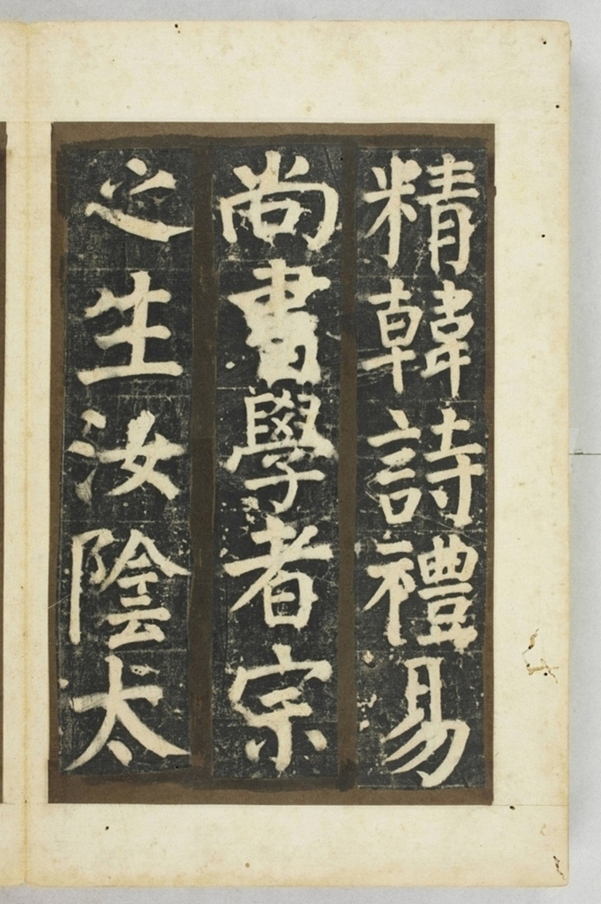 精韓詩禮易
尚書學者宗
之生汝陰太